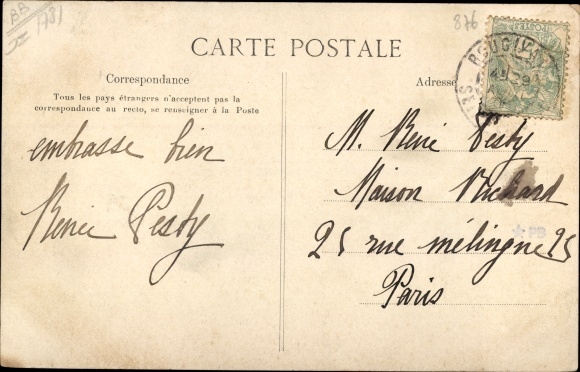 BB
1781
876
CARTE POSTALE
Correspondance
Tous les pays étrangers n'acceptent pas la
correspondance au recto, se renseigner à la Poste
embrasse bien
Renée Pesty
Adresse
M. René Pesty
Maison
25 rue mélingue 25
Paris
PB